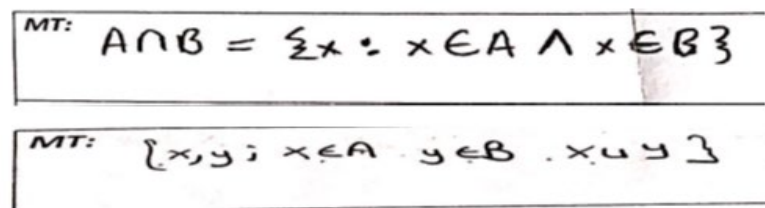 MT: A∩B = {x : x ∈ A ∧ x ∈ B}
MT: {x, y ; x ∈ A y ∈ B . x ∪ y }